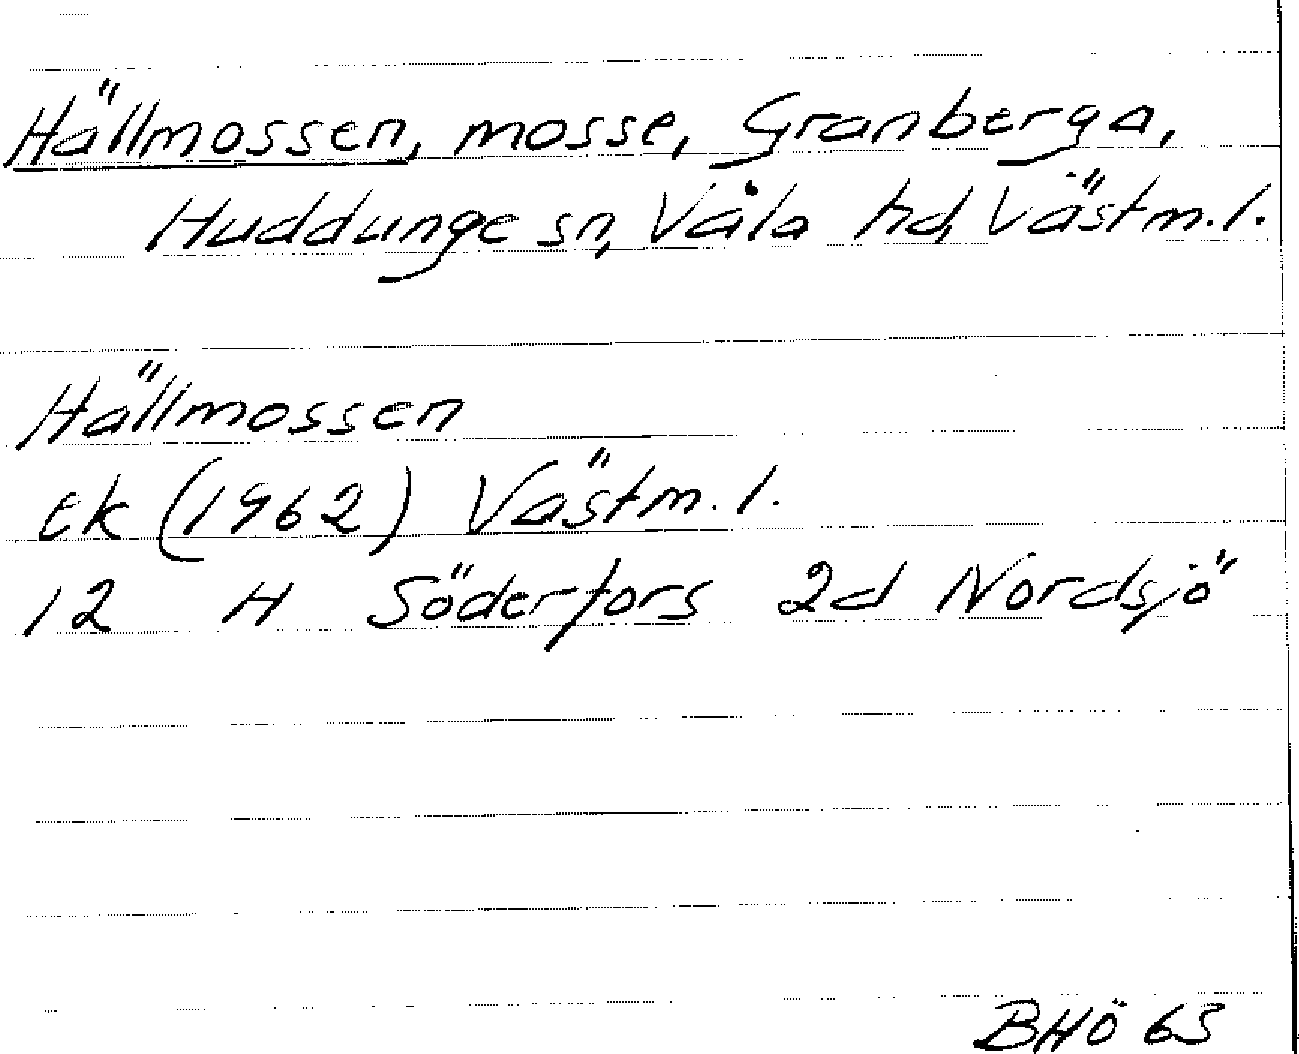 Hällmossen, mosse, Granberga,
Huddunge sn, Våla hd, Västm.l.
Hällmossen
ek (1962) Västm.l.
12 H Söderfors 2d Nordsjö
BHÖ 65